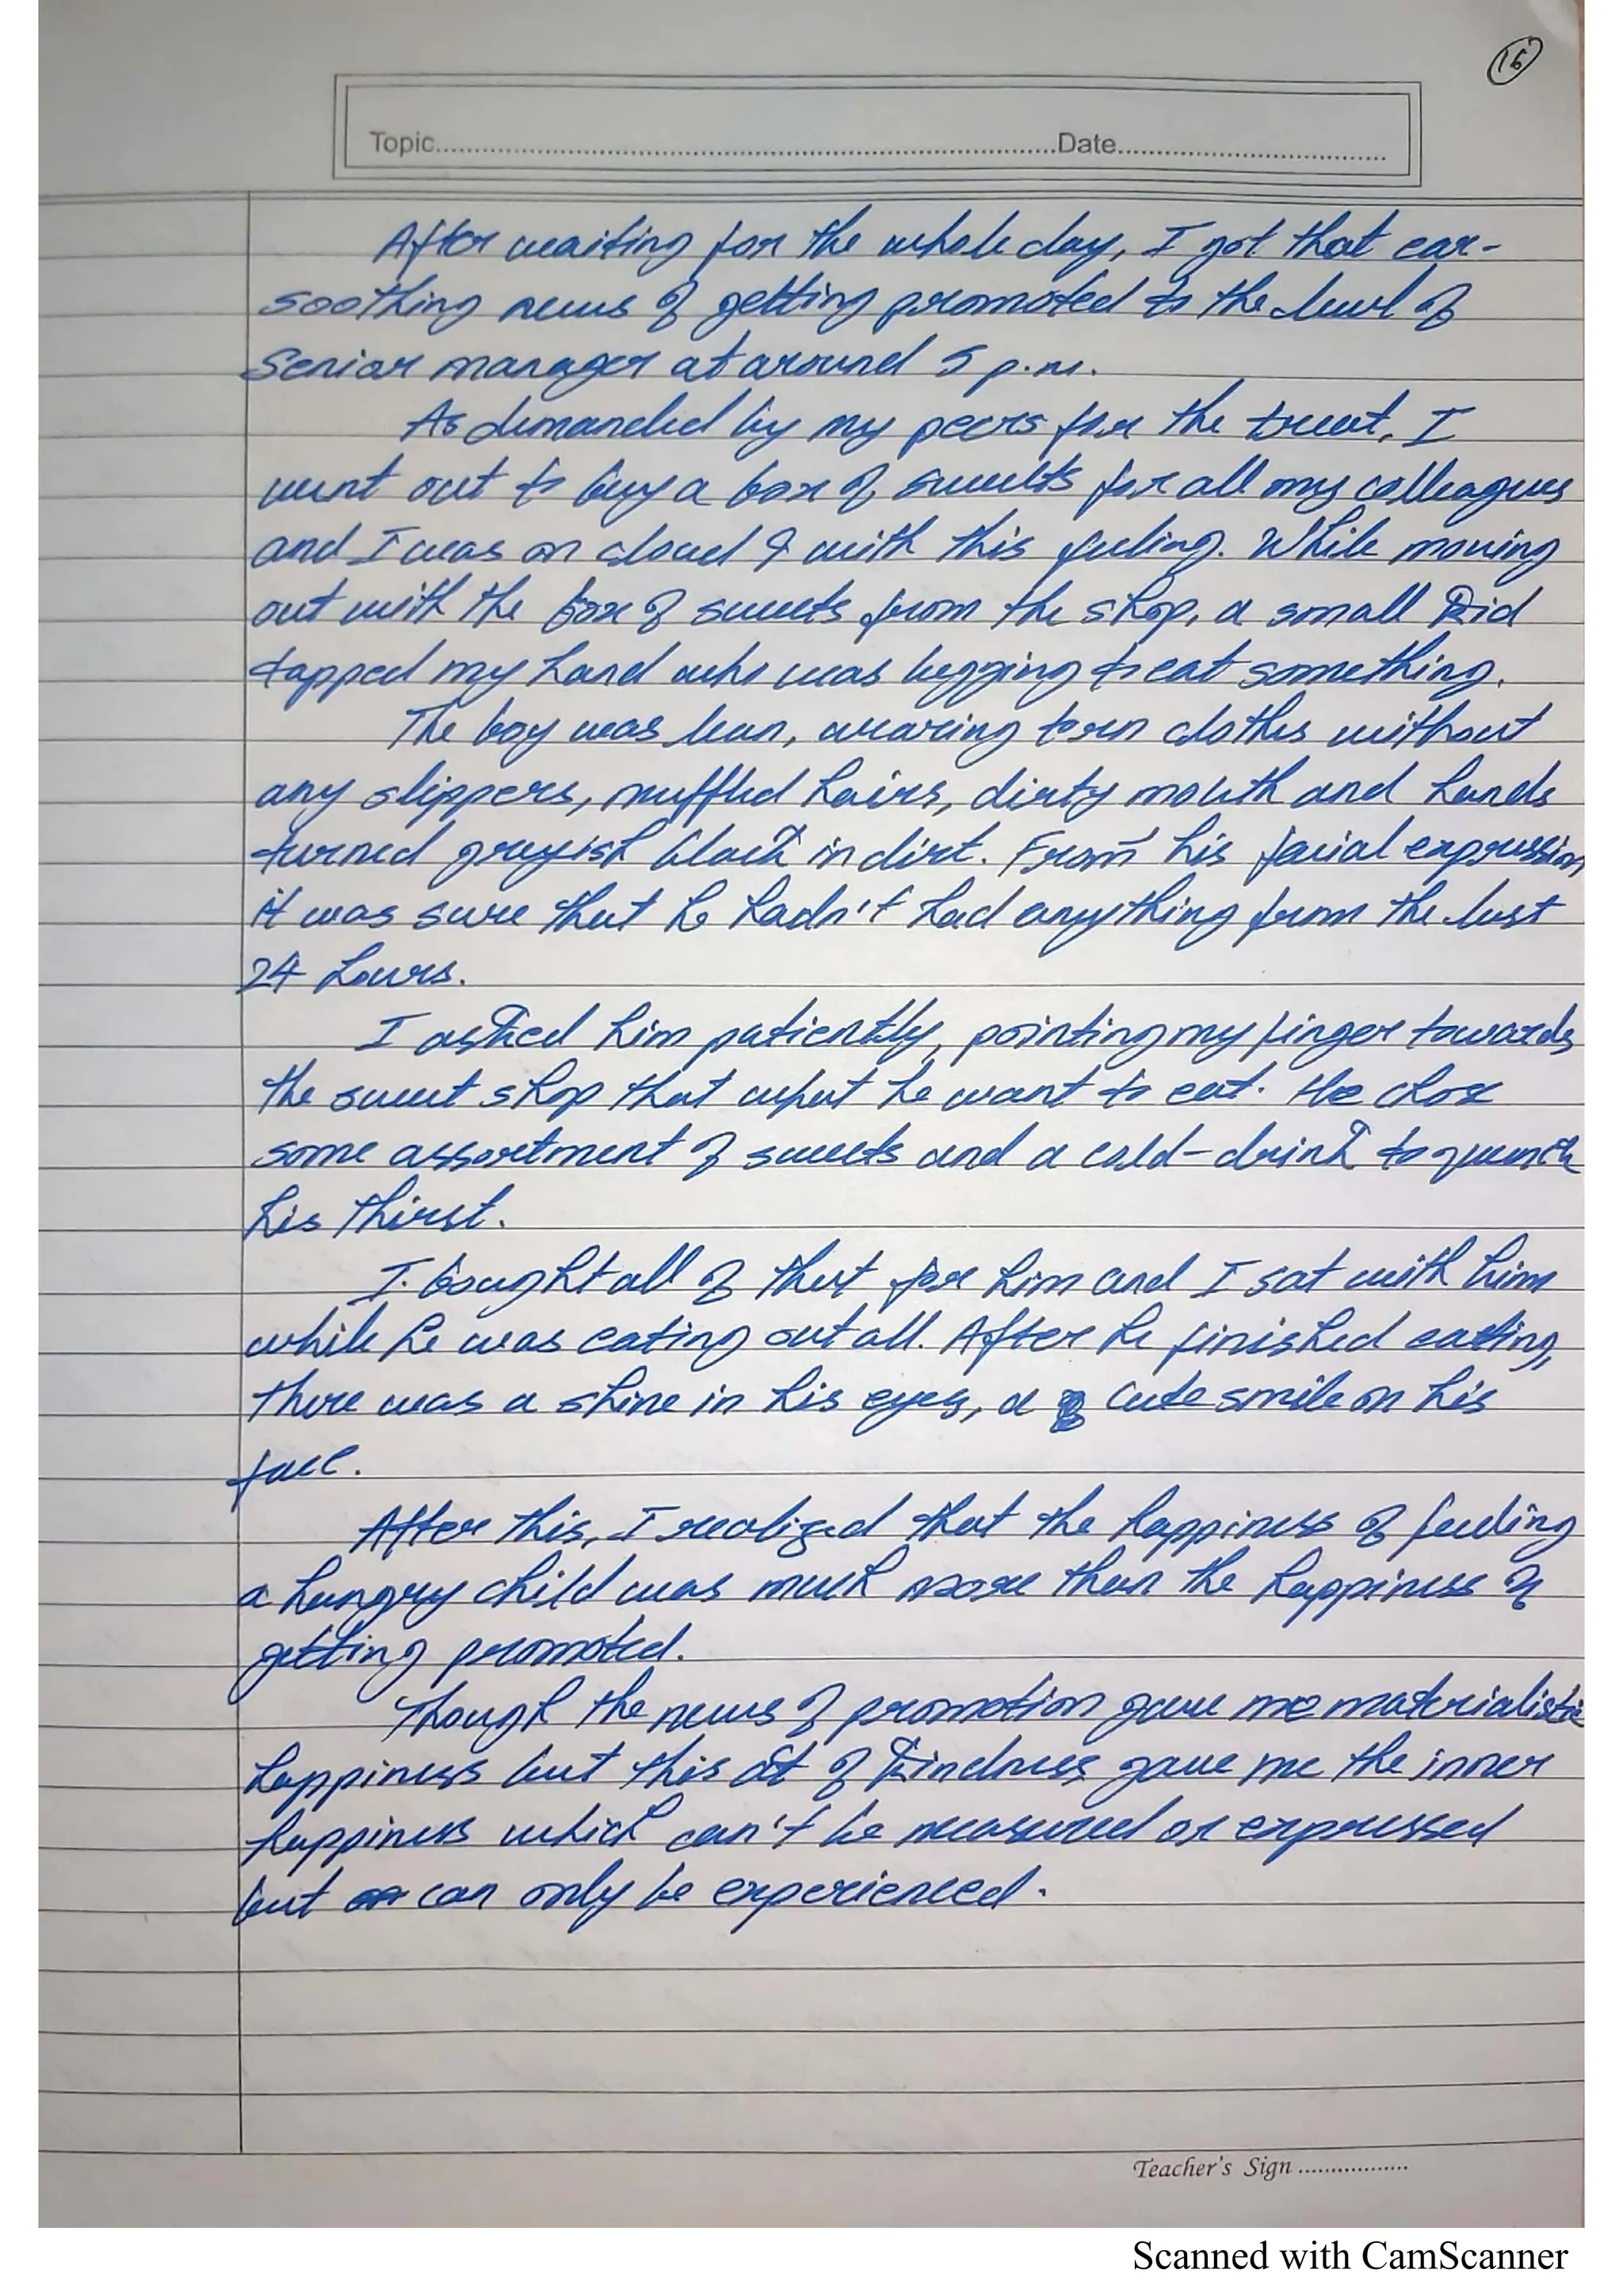 16
Topic..........Date..........
After waiting for the whole day, I got that ear-
soothing news of getting promoted to the level of
Senior manager at around 5 p.m.
As demanded by my peers for the treat, I
went out to buy a box of sweets for all my colleagues
and I was on cloud 9 with this feeling. While moving
out with the box of sweets from the shop, a small kid
tapped my hand who was begging to eat something.
The boy was lean, wearing torn clothes without
any slippers, muffled hairs, dirty mouth and hands
turned greyish black in dirt. From his facial expression
it was sure that he hadn't had anything from the last
24 hours.
I asked him patiently, pointing my finger towards
the sweet shop that what he want to eat. He chose
some assortment of sweets and a cold-drink to quench
his thirst.
I bought all of that for him and I sat with him
while he was eating out all. After he finished eating,
there was a shine in his eyes, a cute smile on his
face.
After this, I realized that the happiness of feeding
a hungry child was much more than the happiness of
getting promoted.
Though the news of promotion gave me materialistic
happiness but this act of kindness gave me the inner
happiness which can't be measured or expressed
but can only be experienced.
Teacher's Sign ..........
Scanned with CamScanner